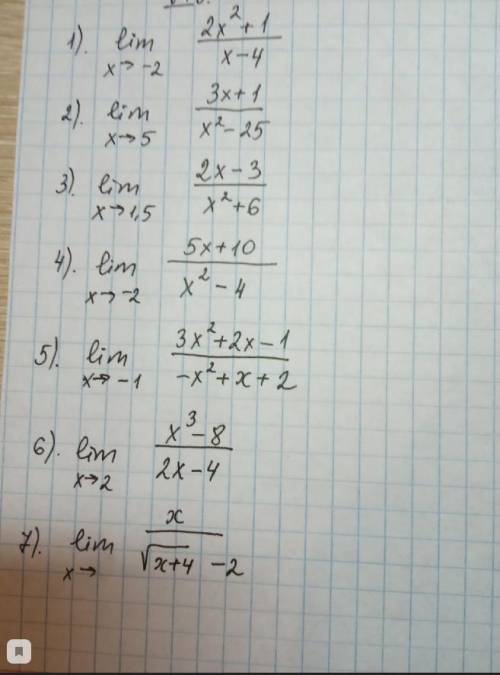 1). lim x→-2 (2x²+1)/(x-4)
2). lim x→5 (3x+1)/(x²-25)
3). lim x→1,5 (2x-3)/(x²+6)
4). lim x→-2 (5x+10)/(x²-4)
5). lim x→-1 (3x²+2x-1)/(-x²+x+2)
6). lim x→2 (x³-8)/(2x-4)
7). lim x→ x/(√(x+4) -2)